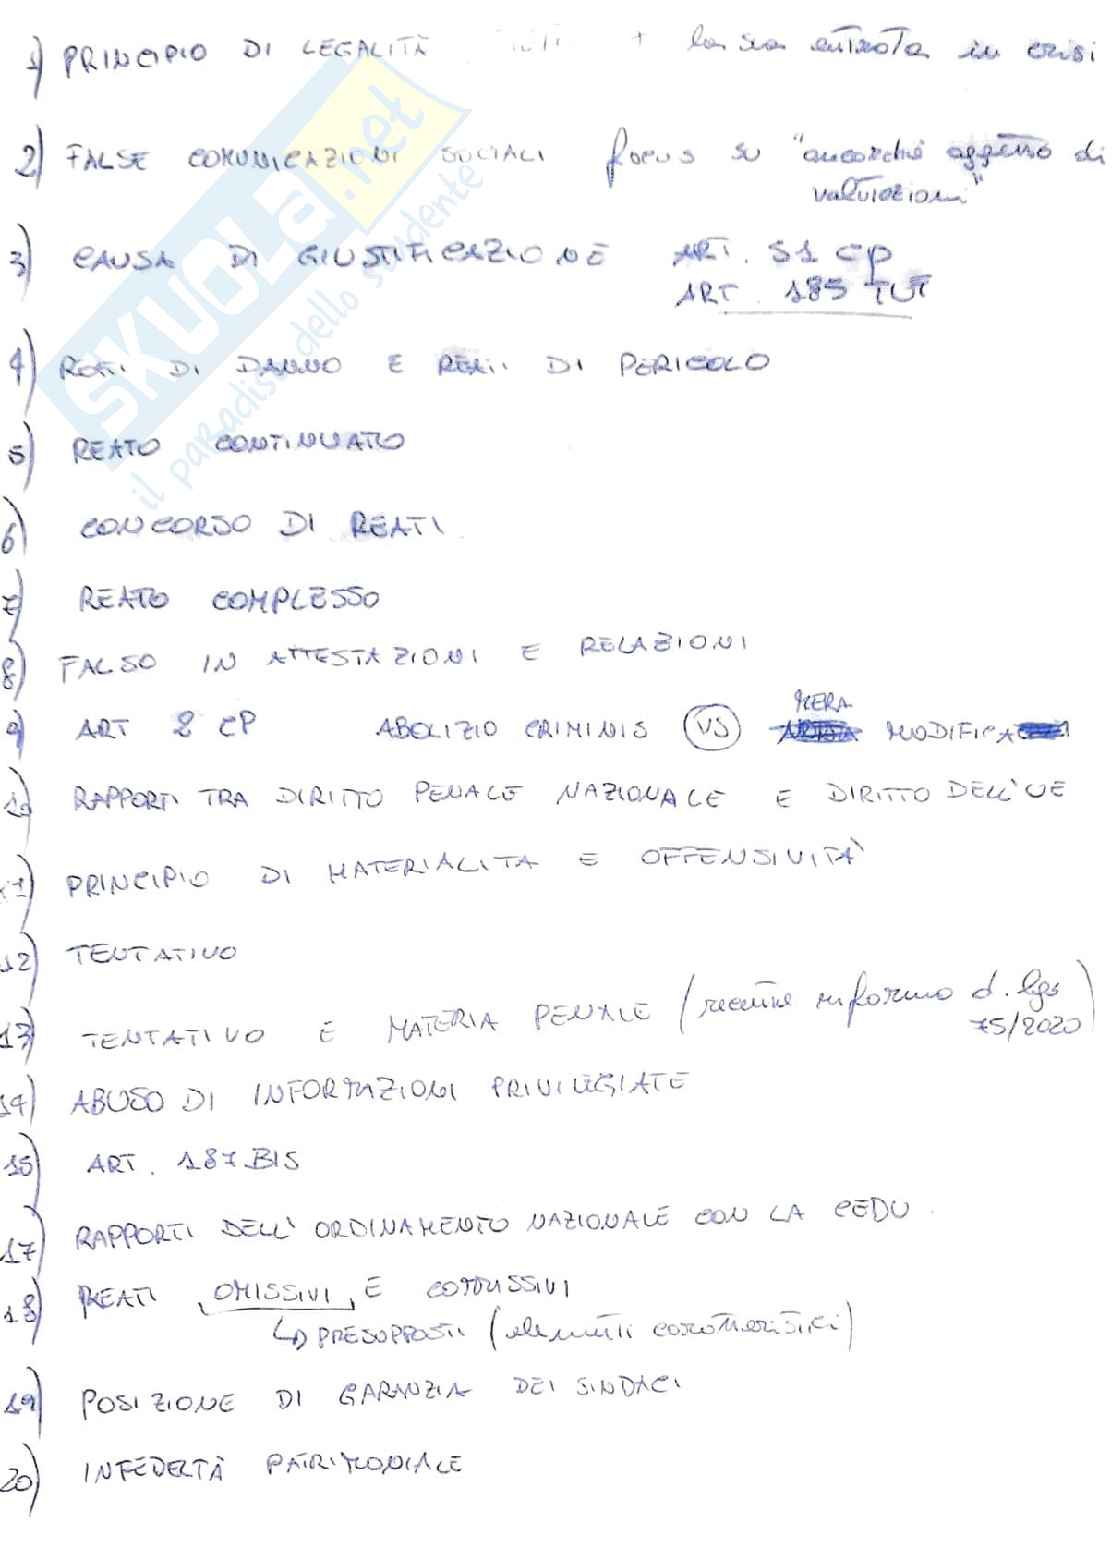 1) PRINCIPIO DI LEGALITÀ + la sua entrata in crisi
2) FALSE COMUNICAZIONI SOCIALI focus su "ancorché oggetto di
valutazioni"
3) CAUSA DI GIUSTIFICAZIONE ART. 51 cp
ART. 185 TUF
4) REATI DI DANNO E REATI DI PERICOLO
5) REATO CONTINUATO
6) CONCORSO DI REATI
7) REATO COMPLESSO
8) FALSO IN ATTESTAZIONI E RELAZIONI
MERA
9) ART 2 CP ABOLIZIO CRIMINIS VS MODIFICA
10) RAPPORTI TRA DIRITTO PENALE NAZIONALE E DIRITTO DELL'UE
11) PRINCIPIO DI MATERIALITA E OFFENSIVITÀ
12) TENTATIVO
13) TENTATIVO E MATERIA PENALE (recente riforma d.lgs
75/2020)
14) ABUSO DI INFORMAZIONI PRIVILEGIATE
15) ART. 187 BIS
17) RAPPORTI DELL'ORDINAMENTO NAZIONALE CON LA CEDU.
18) REATI OMISSIVI E COMMISSIVI
PRESUPPOSTI (elementi caratteristici)
19) POSIZIONE DI GARANZIA DEI SINDACI
20) INFEDELTÀ PATRIMONIALE
SKUOLA.net
il paradiso dello studente